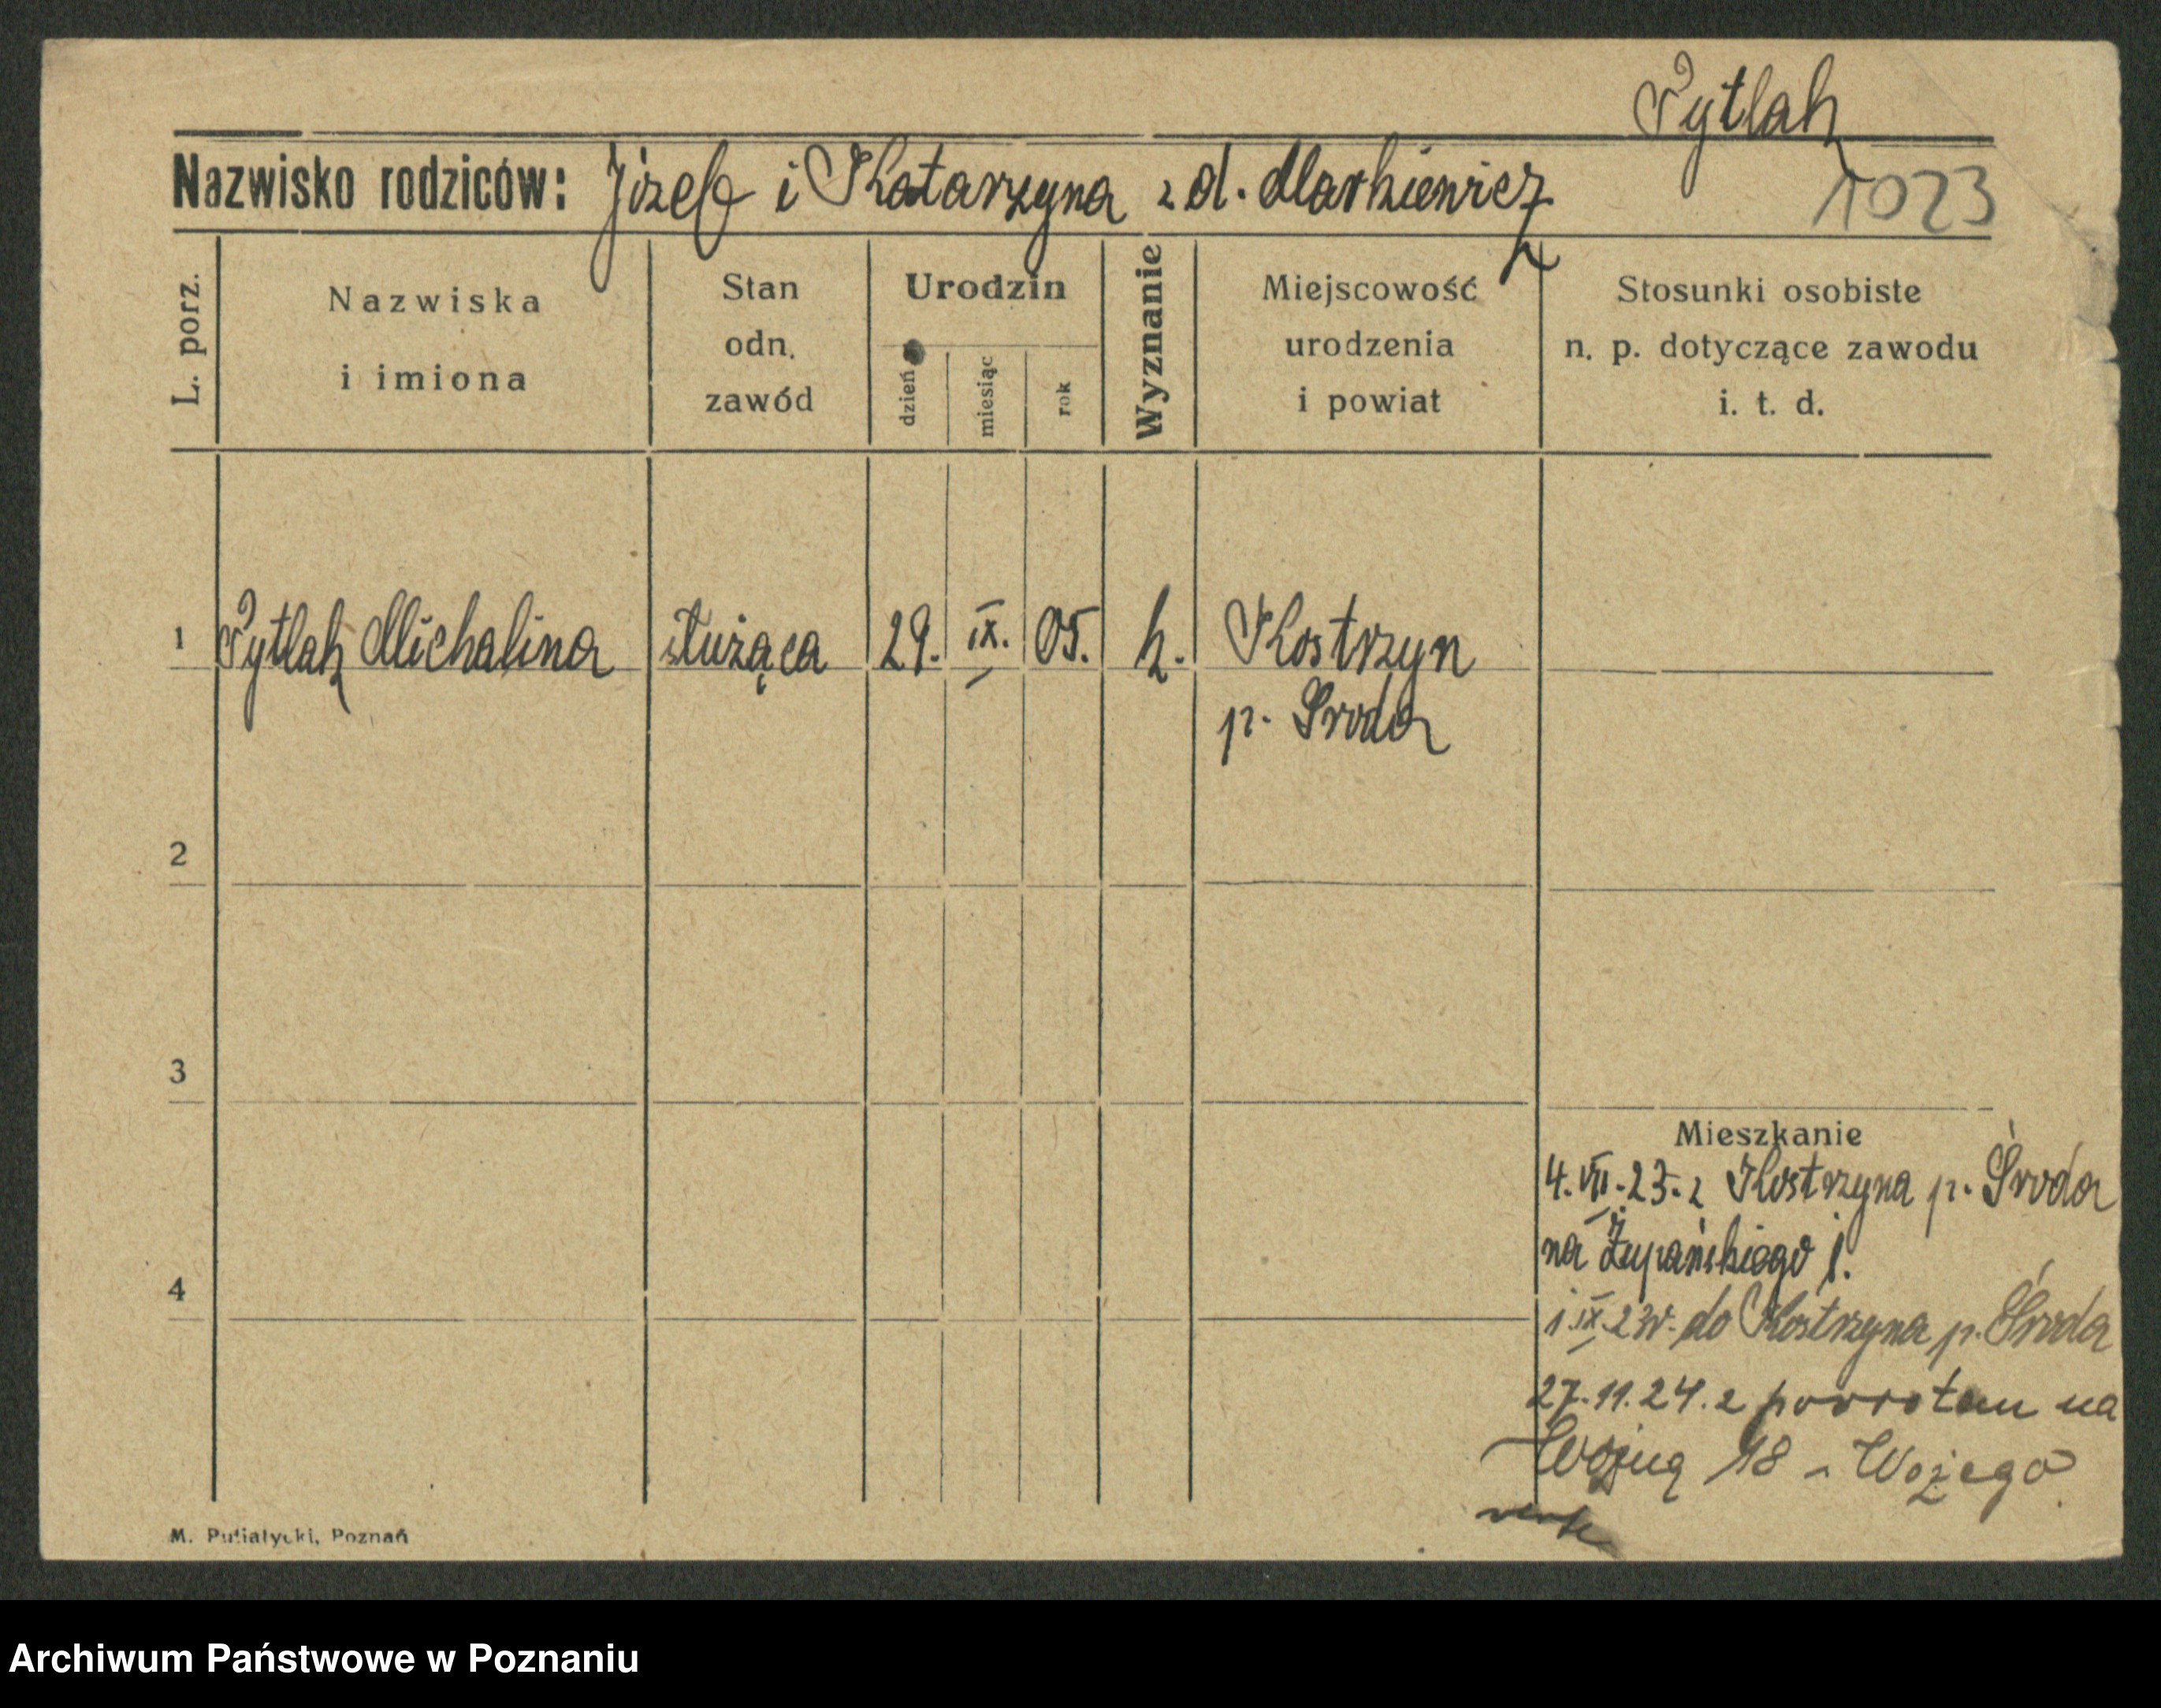 Pytlak
Nazwisko rodziców: Józef i Katarzyna z d. Markiewicz
1023
L. porz.
Nazwiska
i imiona
Stan
odn.
zawód
Urodzin
dzień
miesiąc
rok
Wyznanie
Miejscowość
urodzenia
i powiat
Stosunki osobiste
n. p. dotyczące zawodu
i. t. d.
1 Pytlak Michalina służąca 29. IX. 05. k. Kostrzyn
p. Środa
2
3
Mieszkanie
4. VII. 23. z Kostrzyna p. Środa
na Żupańskiego 1.
4
1 IX 23r. do Kostrzyna p. Środa
27.11.24. z powrotem na
18 -
verte
M. Putiatycki, Poznań
Archiwum Państwowe w Poznaniu